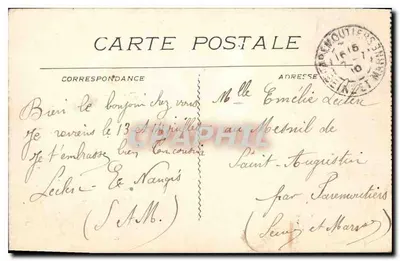 CARTE POSTALE
CORRESPONDANCE
Bien le bonjour chez vous
Je reviens le 13
Je t'embrasse bien ton cousin
Leclerc E. Nangis
(S & M.)
ADRESSE
Mlle Emélie Leclerc
au Mesnil de
Saint-Augustin
par Faremoutiers
(Seine et Marne)
FAREMOUTIERS
SEINE ET MARNE